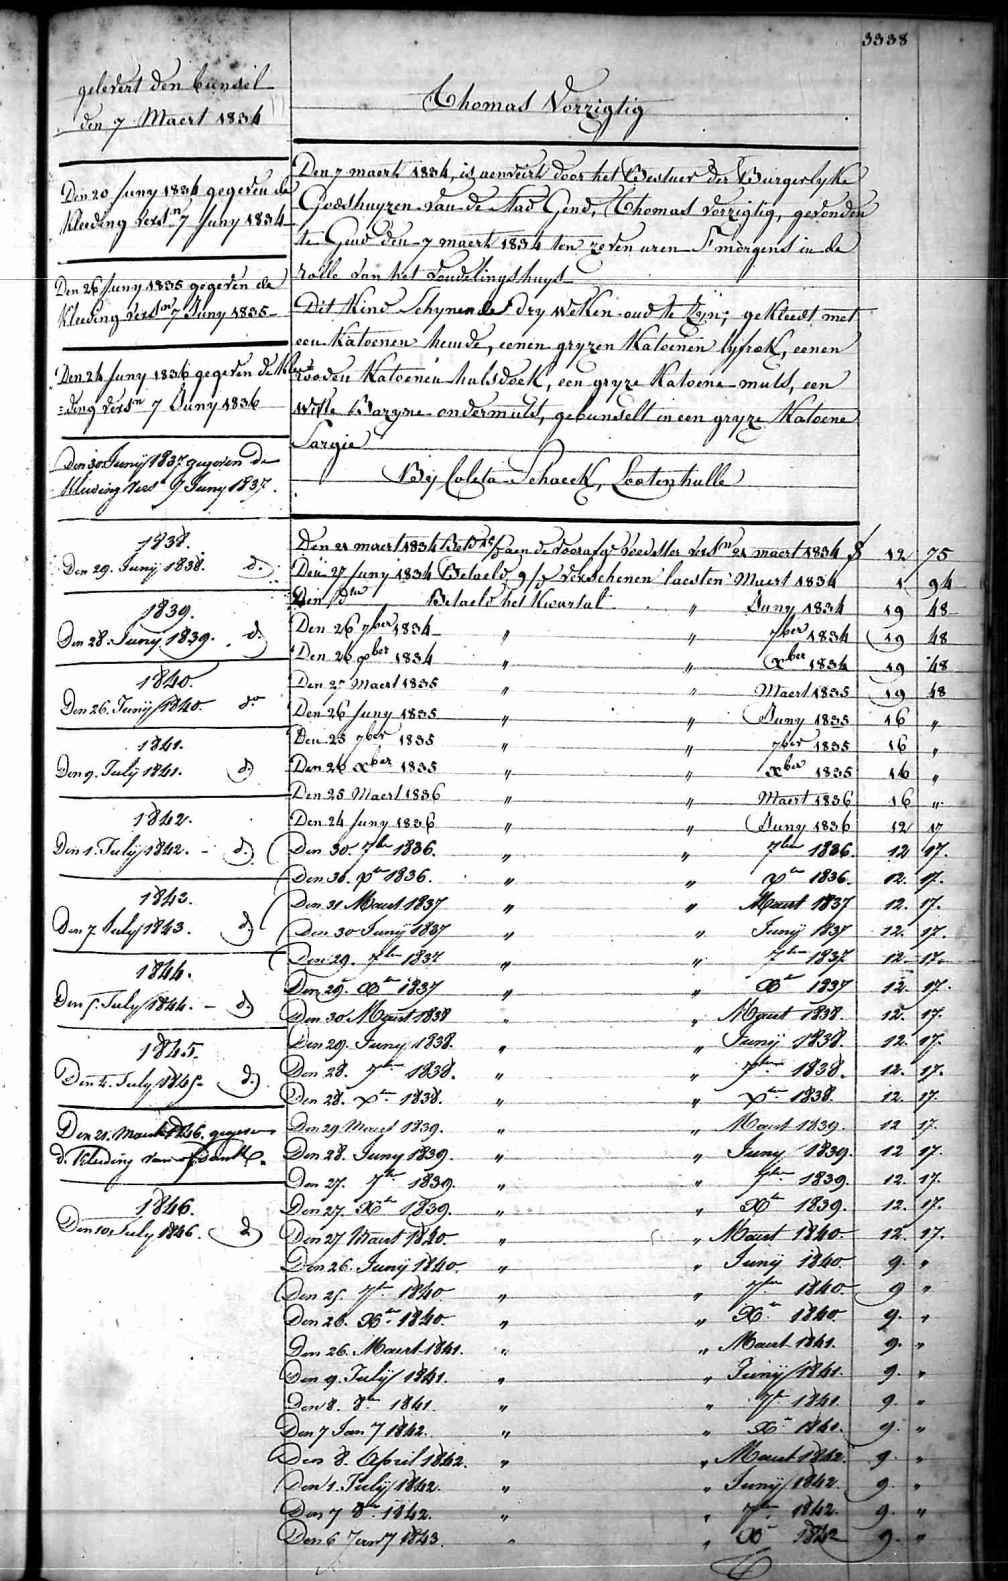 3338
gelevert den bunsel
den 7 Maert 1834
Den 20 Juny 1834 gegeven de
kleeding versn 7 Juny 1834
Den 26 Juny 1835 gegeven de
kleeding versn 7 Juny 1835
Den 24 Juny 1836 gegeven de klee
=ding versn 7 Juny 1836
Den 30 Junij 1837 gegeven de
kleeding vers 7 Juny 1837.
1838.
Den 29. Junij 1838. do
1839.
Den 28. Juny 1839. do
1840.
Den 26. Junij 1840. do
1841.
Den 9. Julij 1841. do
1842.
Den 1. Julij 1842. - do
1843.
Den 7. July 1843. do
1844.
Den 5. July 1844. - do
1845.
Den 4. July 1845 - do
Den 21. Maert 1846. gegeven
d. kleeding van
1846.
Den 10 July 1846. do
Thomas Vorzigtig
Den 7 maert 1834, is aenveirt door het Bestuer der Burgerlyke
Godshuyzen van de Stad Gend, Thomas Vorzigtig, gevonden
te Gend den 7 maert 1834 ten zeven uren Smorgens in de
rolle van het vondelingshuys
Dit Kind Schynende dry weken oud te zyn; gekleedt met
een Katoenen hemde, eenen gryzen Katoenen lyfrok, eenen
rooden Katoenen halsdoek, een gryze Katoene muts, een
Witte Bazyne ondermuts, gebunselt in een gryze Katoene
Sargie
By Coleta Schaeck, Lootenhulle
Den 21 maert 1834 Betd aen de voorafge voedster versn 21 maert 1834 f 12 75
Den 27 Juny 1834 Betaeld verschenen laesten Maert 1834 1 94
Den do Betaeld het Kwartal " Juny 1834 19 48
Den 26 7ber 1834 " " 7ber 1834 19 48
Den 26 xber 1834 " " xber 1834 19 48
Den 27 Maert 1835 " " Maert 1835 19 48
Den 26 Juny 1835 " " Juny 1835 16 "
Den 25 7ber 1835 " " 7ber 1835 16 "
Den 26 xber 1835 " " xber 1835 16 "
Den 25 Maert 1836 " " Maert 1836 16 "
Den 24 Juny 1836 " " Juny 1836 12 17
Den 30. 7ber 1836. " " 7ber 1836. 12 17.
Den 30. xber 1836. " " xber 1836. 12. 17.
Den 31 Maert 1837 " " Maert 1837 12. 17.
Den 30 Junij 1837 " " Junij 1837 12. 17.
Den 29. 7ber 1837 " " 7ber 1837 12. 17.
Den 29. Xber 1837 " " Xber 1837 12. 17.
Den 30. Maert 1838 " " Maert 1838. 12. 17.
Den 29. Juny 1838. " " Junij 1838. 12. 17.
Den 28. 7ber 1838. " " 7ber 1838. 12. 17.
Den 28. Xber 1838. " " Xber 1838. 12. 17.
Den 29 Maert 1839. " " Maert 1839. 12 17.
Den 28. Juny 1839. " " Juny 1839. 12 17.
Den 27. 7ber 1839. " " 7ber 1839. 12. 17.
Den 27. Xber 1839. " " Xber 1839. 12. 17.
Den 27 Maert 1840. " " Maert 1840. 12. 17.
Den 26. Junij 1840. " " Junij 1840. 9. "
Den 25. 7ber 1840. " " 7ber 1840. 9 "
Den 26. Xber 1840. " " Xber 1840. 9. "
Den 26. Maert 1841. " " Maert 1841. 9. "
Den 9. Julij 1841. " " Junij 1841. 9. "
Den 8. 8ber 1841. " " 7br 1841. 9. "
Den 7 Jan 7 1842. " " Xr 1841. 9. "
Den 8. April 1842. " " Maert 1842. 9. "
Den 1. Julij 1842. " " Junij 1842. 9. "
Den 7 8br 1842. " " 7ber 1842. 9. "
Den 6 Jan 7 1843. " " Xr 1842 9. "